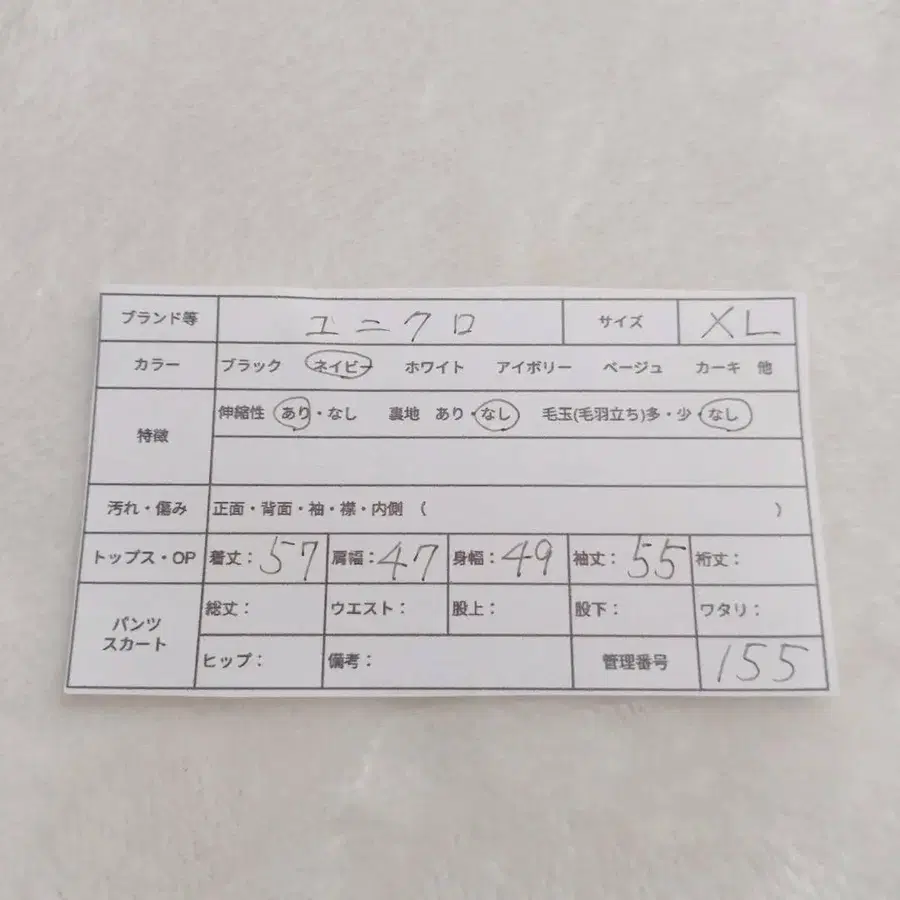 ブランド等 ユニクロ サイズ XL
カラー ブラック ネイビー ホワイト アイボリー ベージュ カーキ 他
特徴 伸縮性 あり・なし 裏地 あり・なし 毛玉(毛羽立ち)多・少・なし
汚れ・傷み 正面・背面・袖・襟・内側 ( )
トップス・OP 着丈：57 肩幅：47 身幅：49 袖丈：55 裄丈：
パンツ 総丈： ウエスト： 股上： 股下： ワタリ：
スカート ヒップ： 備考： 管理番号 155